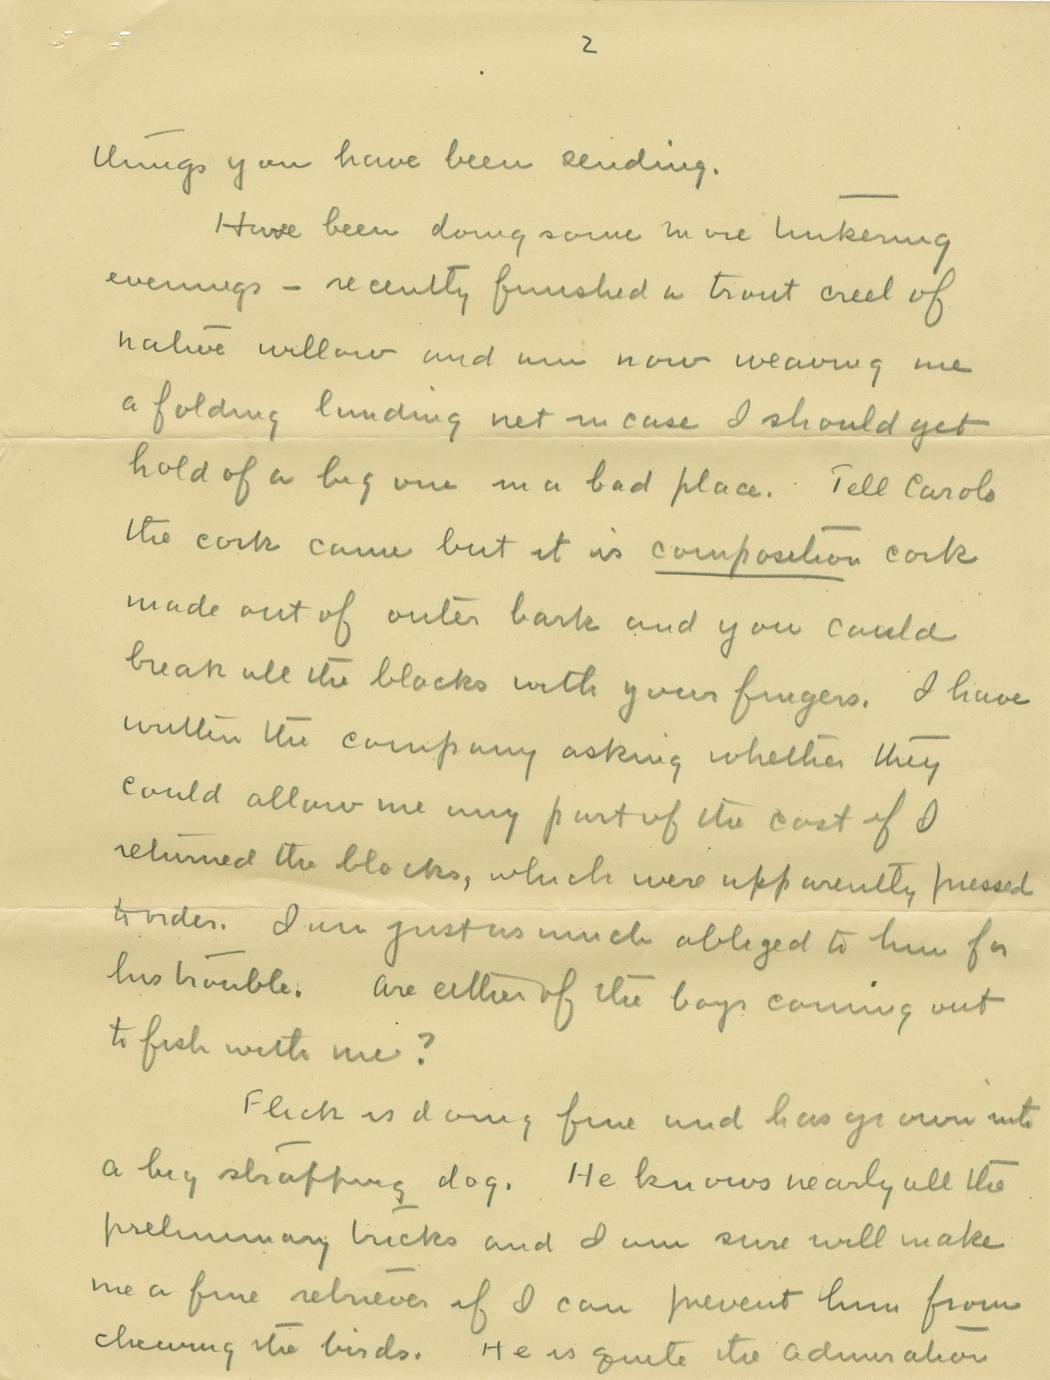 2
things you have been sending.
Have been doing some more tinkering
evenings – recently finished a trout creel of
native willow and am now weaving me
a folding landing net in case I should get
hold of a big one in a bad place. Tell Carolo
the cork came but it is composition cork
made out of outer bark and you could
break all the blocks with your fingers. I have
written the company asking whether they
could allow me any part of the cost if I
returned the blocks, which were apparently pressed
to order. I am just as much obliged to him for
his trouble. Are either of the boys coming out
to fish with me?
Flick is doing fine and has grown into
a big strapping dog. He knows nearly all the
preliminary tricks and I am sure will make
me a fine retriever if I can prevent him from
chewing the birds. He is quite the admiration